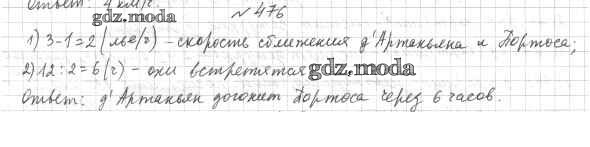 Ответ: 4 км/ч.
gdz.moda
№476
1) 3-1=2 (лье/ч) - скорость сближения д'Артаньяна и Портоса;
2) 12 : 2 = 6 (ч) - они встретятся gdz.moda
Ответ: д'Артаньян догонит Портоса через 6 часов.